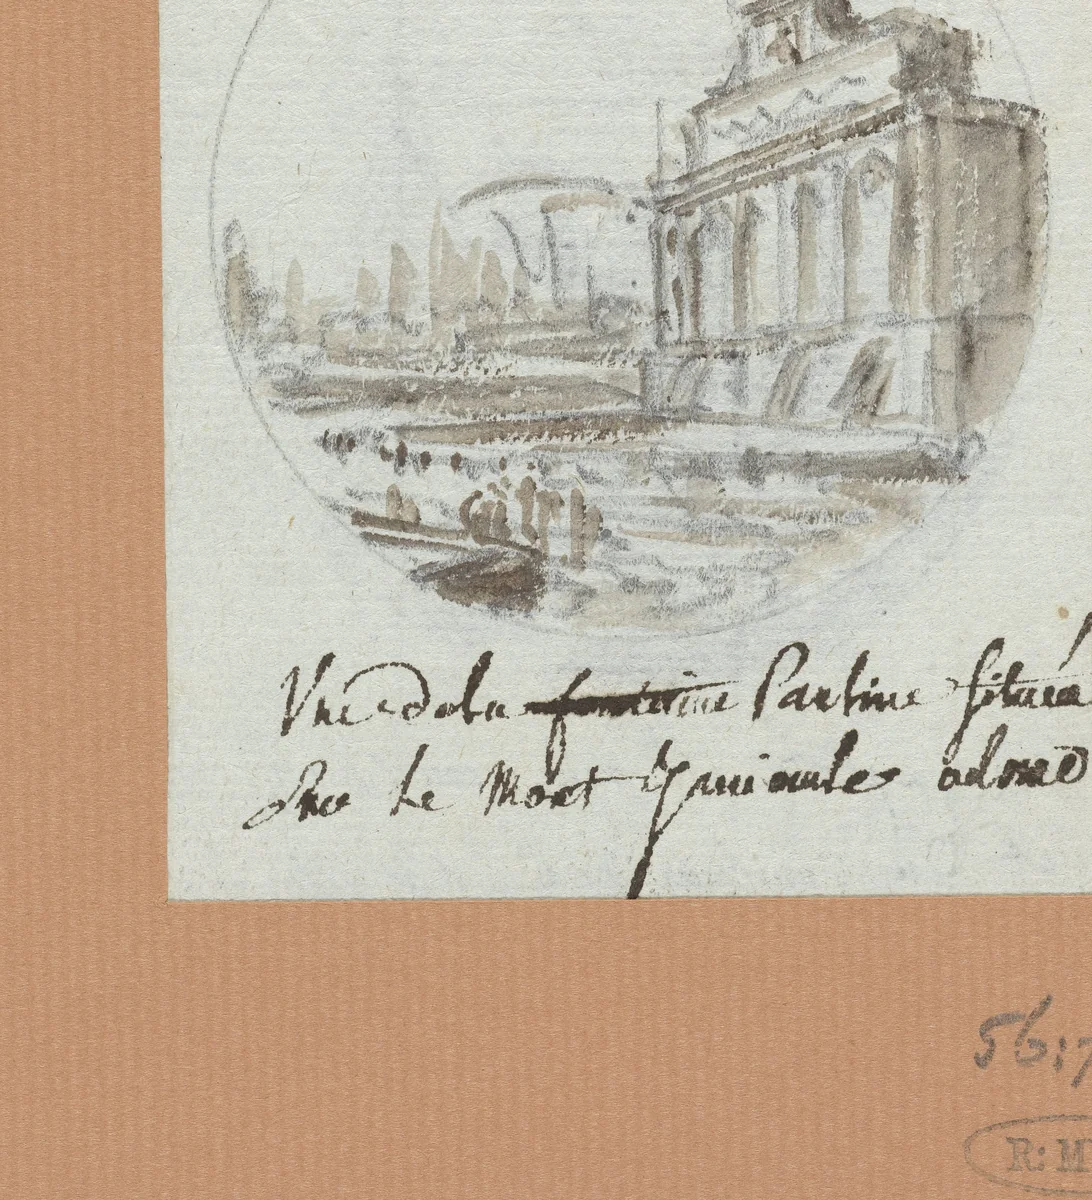 Vue de la fontaine Pauline située
Sur le Mont Janicule adomé
56:7
R: M